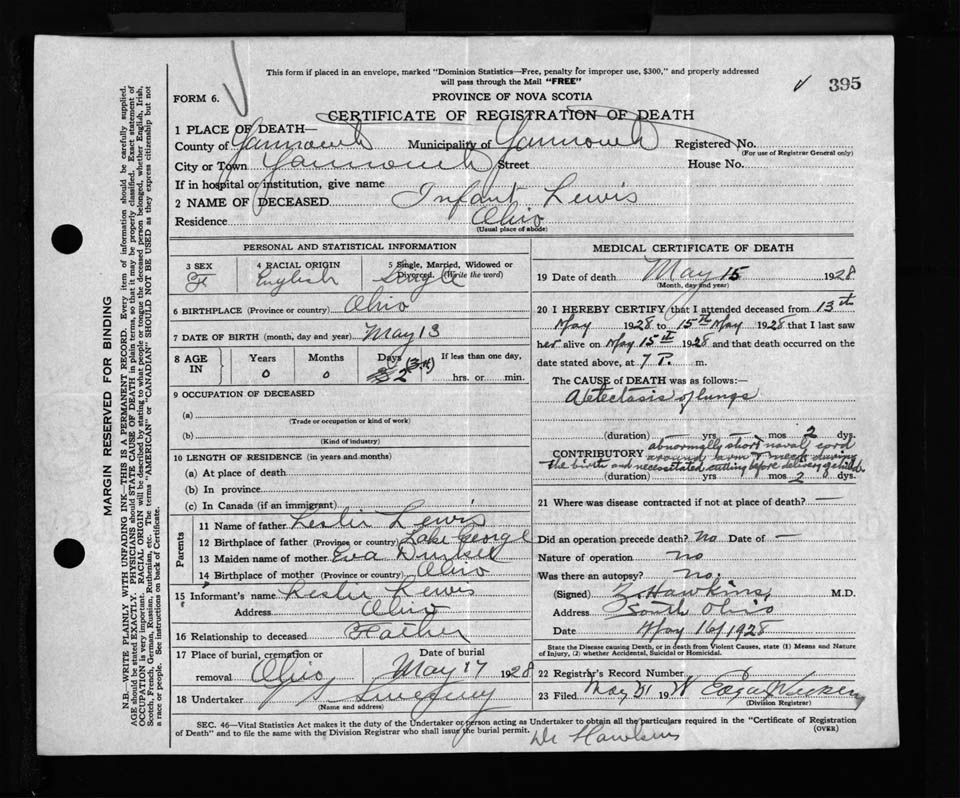 This form if placed in an envelope, marked "Dominion Statistics—Free, penalty for improper use, $300," and properly addressed
will pass through the Mail "FREE"
395
FORM 6.
PROVINCE OF NOVA SCOTIA
CERTIFICATE OF REGISTRATION OF DEATH
1 PLACE OF DEATH—
County of Yarmouth Municipality of Yarmouth Registered No.
(For use of Registrar General only)
City or Town Yarmouth Street House No.
If in hospital or institution, give name
2 NAME OF DECEASED Infant Lewis
Residence Ohio
(Usual place of abode)
PERSONAL AND STATISTICAL INFORMATION
3 SEX
4 RACIAL ORIGIN English
5 Single, Married, Widowed or Divorced. (Write the word) Single
6 BIRTHPLACE (Province or country) Ohio
7 DATE OF BIRTH (month, day and year) May 13
8 AGE IN Years 0 Months 0 Days 2 If less than one day, hrs. or min.
9 OCCUPATION OF DECEASED
(a)
(Trade or occupation or kind of work)
(b)
(Kind of industry)
10 LENGTH OF RESIDENCE (in years and months)
(a) At place of death
(b) In province
(c) In Canada (if an immigrant)
Parents
11 Name of father Leslie Lewis
12 Birthplace of father (Province or country) Lake George
13 Maiden name of mother Eva
14 Birthplace of mother (Province or country) Ohio
15 Informant's name Leslie Lewis
Address Ohio
16 Relationship to deceased Father
17 Place of burial, cremation or removal Ohio
Date of burial May 17 1928
18 Undertaker
(Name and address)
MEDICAL CERTIFICATE OF DEATH
19 Date of death May 15 1928
(Month, day and year)
20 I HEREBY CERTIFY that I attended deceased from 13th
May 1928 to 15th May 1928 that I last saw
her alive on May 15th 1928 and that death occurred on the
date stated above, at 7 P. m.
The CAUSE of DEATH was as follows:—
Atelectasis of lungs
(duration) yrs mos 2 dys.
CONTRIBUTORY abnormally short naval cord
around arm & neck during
the birth and necessitated cutting before delivery of child
(duration) yrs mos 2 dys.
21 Where was disease contracted if not at place of death? —
Did an operation precede death? No Date of —
Nature of operation no
Was there an autopsy? no.
(Signed) Z. Hawkins, M.D.
Address South Ohio
Date May 16/1928
State the Disease causing Death, or in death from Violent Causes, state (1) Means and Nature
of Injury, (2) whether Accidental, Suicidal or Homicidal.
22 Record Number
23 Filed May 21 1928
(Division Registrar)
SEC. 46—Vital Statistics Act makes it the duty of the Undertaker or person acting as Undertaker to obtain all the particulars required in the "Certificate of Registration
of Death" and to file the same with the Division Registrar who shall issue the burial permit.
(OVER)
Dr Hawkins
MARGIN RESERVED FOR BINDING
N.B.—WRITE PLAINLY WITH UNFADING INK—THIS IS A PERMANENT RECORD. Every item of information should be carefully supplied.
AGE should be stated EXACTLY. PHYSICIANS should STATE CAUSE OF DEATH in plain terms, so that it may be properly classified. Exact statement of
OCCUPATION is very important. RACIAL ORIGIN will be described by stating to what people or tongue the deceased person belonged, whether English, Irish,
Scotch, French, German, Russian, Ruthenian, etc. The terms "AMERICAN" or "CANADIAN" SHOULD NOT BE USED as they express citizenship but not
a race or people. See instructions on back of Certificate.